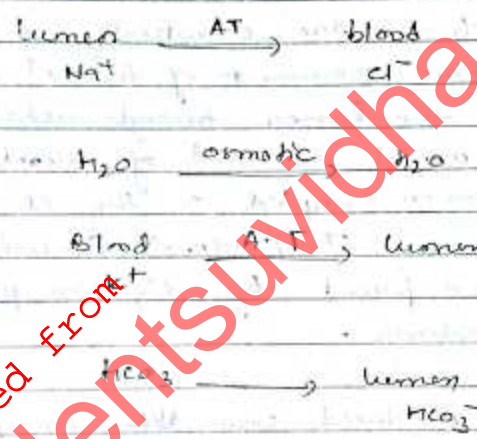 lumen AT → blood
Na+ Cl-
H2O osmotic → H2O
Blood A.T → lumen
K+
HCO3 → lumen
HCO3-
ed from
entsuvidha